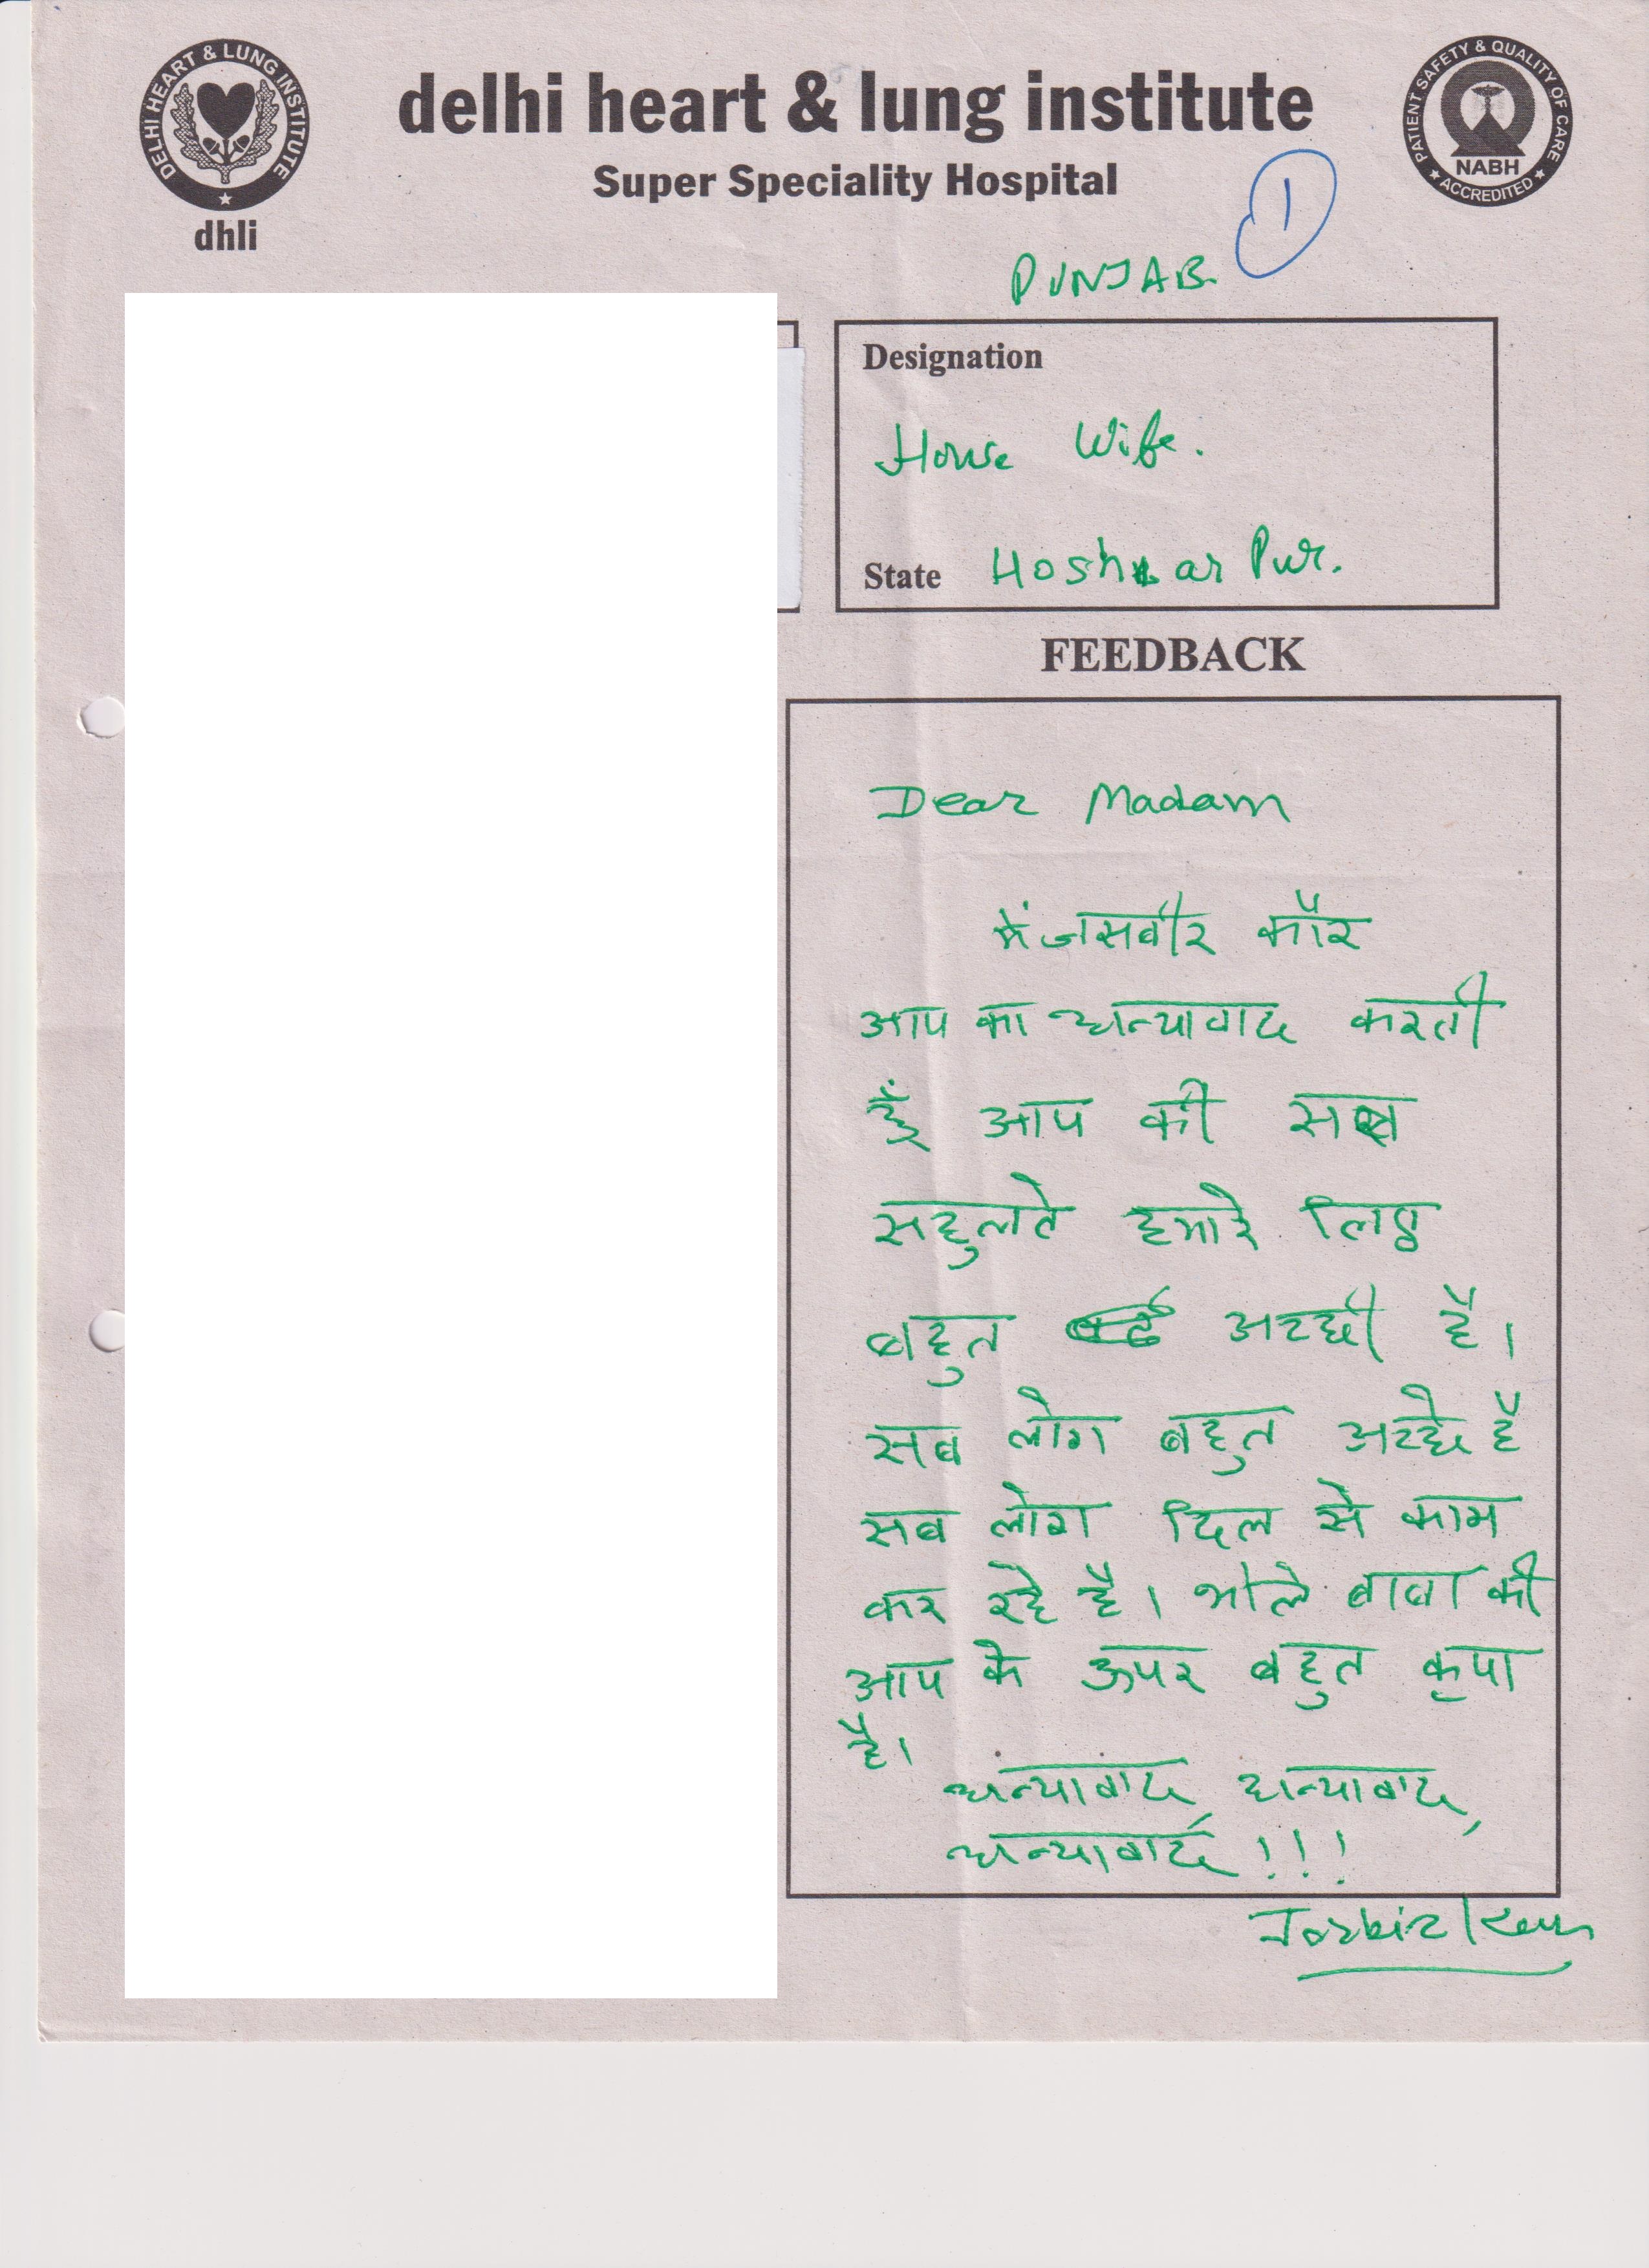 DELHI HEART & LUNG INSTITUTE
dhli
delhi heart & lung institute
Super Speciality Hospital
PATIENT SAFETY & QUALITY OF CARE
NABH
ACCREDITED
1
PUNJAB
Designation
House Wife.
State Hoshiar Pur.
FEEDBACK
Dear Madam
मैं जसबीर कौर
आप का धन्यावाद करती
हूँ आप की सब
सहुलते हमारे लिए
बहुत अच्छी है।
सब लोग बहुत अच्छे है
सब लोग दिल से काम
कर रहे है। भोले बाबा की
आप के ऊपर बहुत कृपा
है।
धन्यावाद, धन्यावाद,
धन्यावाद !!!
Jasbir Kaur